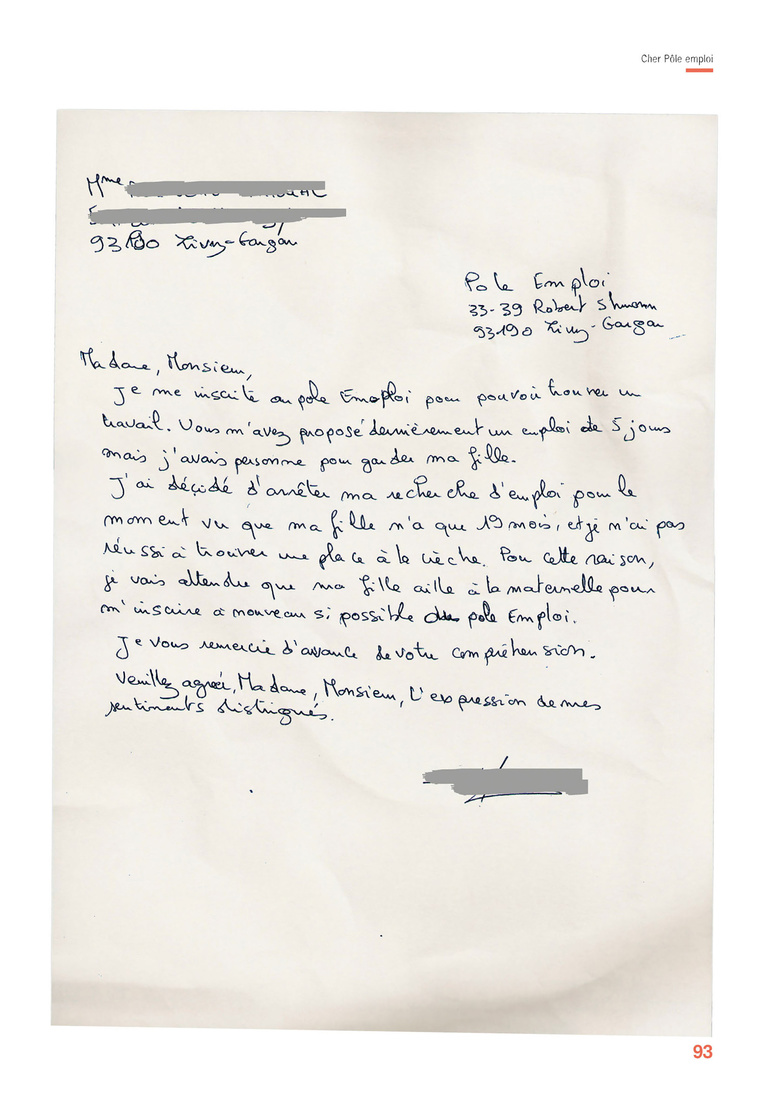 Cher Pôle emploi
Mme
93190 Livry-Gargan
Pole Emploi
33-39 Robert Shumann
93190 Livry-Gargan
Madame, Monsieur,
Je me inscrite au pole Emploi pour pouvoir trouver un
travail. Vous m'avez proposé dernièrement un emploi de 5 jours
mais j'avais personne pour garder ma fille.
J'ai décidé d'arrêter ma recherche d'emploi pour le
moment vu que ma fille n'a que 19 mois, et je n'ai pas
réussi à trouver une place à la crèche. Pour cette raison,
je vais attendre que ma fille aille à la maternelle pour
m'inscrire a nouveau si possible au pole Emploi.
Je vous remercie d'avance de votre compréhension.
Veuillez agréer, Madame, Monsieur, L'expression de mes
sentiments distingués.
93